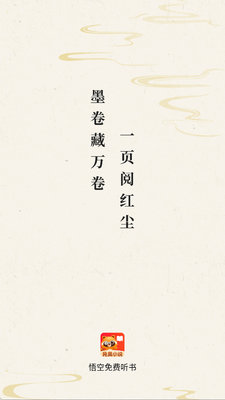 墨卷藏万卷
一页阅红尘
悟空免费听书